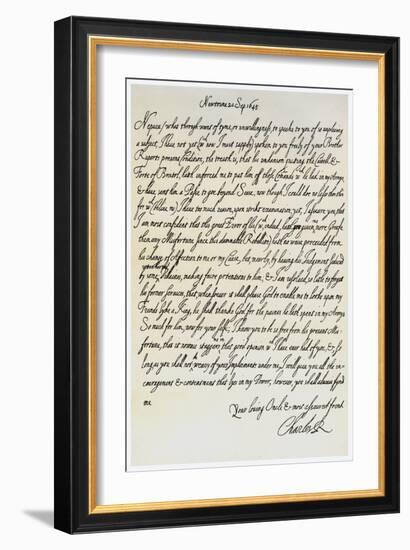 Newtoune 20 Sep. 1645
Nepueu, what through wants of tyme, or unwillingness, to speake to you of so unpleasing
a subject, I have not yet (wch now I must supply) spoken to you freely of your Brother
Ruperts present, the treuth is, that his rendering the Castell &
Forte of Bristol, hath inforced me to put him of those Comands wch he had in my Armys
& have sent him a Passe, to goe beyond Seas; now though I could doe no lesse then this
for wch (believe me) I have too much reason, upon examination, yet, I assure you, that
I am most confident that this great Error of his (wch, indeed, hath given me more Griefe
then any Misfortune since this damnable Rebellion) hath no waies proceeded from
his change of Affection to me or my Cause, but, meerly, by having his Judgement
by some Villaine, making pretentions to him, & I am resolved so litle to forget
his former services, that, whensoever it shall please God to enable me to looke upon my
Frends lyke a King, he shall thanke God for the paines he hath spent in my Armys
So much for him, now for your selfe; I know you to be so free from his present Mis-
fortune, that it nowais that good opinion wch I have ever had of you, & so
long as you shall not weary of your Imployments under me, I will give you all the in-
couragement & contentment that lyes in my Power; however, you shall always fynd
me
Your loving Oncle & most asseured frend
Charles R